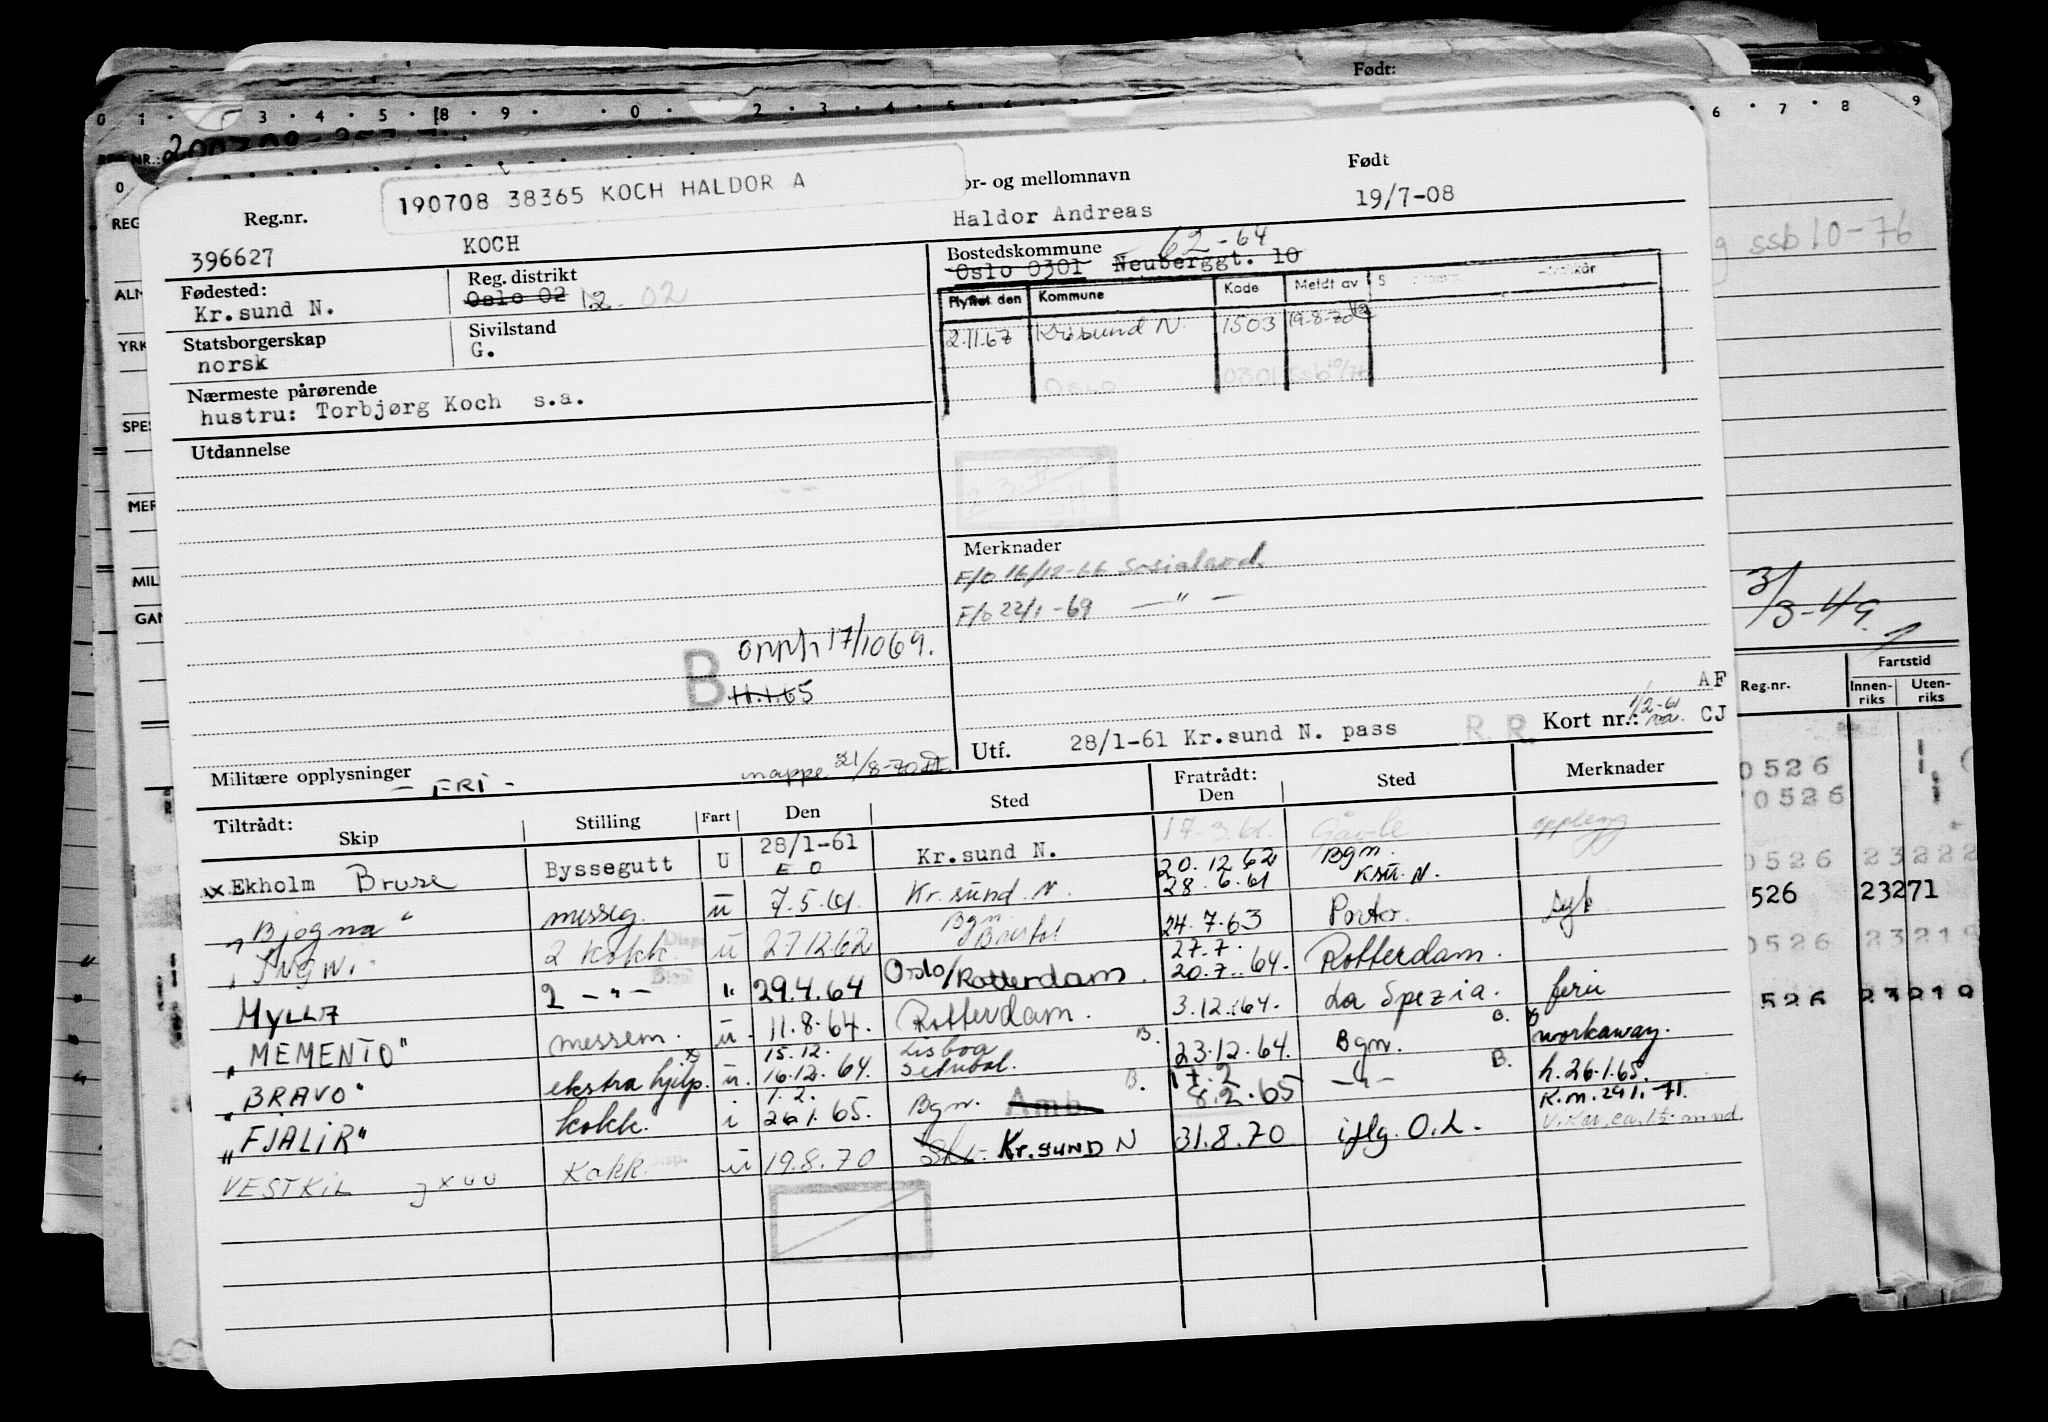 Født:
0 1 3 4 5 8 9 0 2 3 4 5 6 7 6 7 8 9
190708 38365 KOCH HALDOR A
or- og mellomnavn
Født
Reg.nr.
Haldor Andreas
19/7-08
396627
KOCH
Bostedskommune
62-64
Oslo 0301 Neuberggt. 10
Fødested:
Reg. distrikt
Kr.sund N.
Oslo 02 12 02
Flyttet den Kommune Kode Meldt av
Statsborgerskap
Sivilstand
2.11.67 Kr.sund N. 1503 19-8-70
norsk
G.
Oslo 0301 ssb 10/76
Nærmeste pårørende
hustru: Torbjørg Koch s.a.
Utdannelse
Merknader
F/O 16/12-66 Sosialavd.
F/O 22/1-69 — " —
B opph 17/10 69.
11.1.65
AF
Kort nr.: 1/2-61 CJ
R. R.
Utf. 28/1-61 Kr.sund N. pass
Militære opplysninger
- FRI -
mappe 21/8-70
Tiltrådt:
Skip Stilling Fart Den Sted Fratrådt: Den Sted Merknader
17.3.61. Gävle
Ekholm Bruse Byssegutt U 28/1-61 Kr.sund N. 20.12.62 Bgn.
E O
28.6.61 Ksu. N.
"Bjøgna" messeg. u 7.5.61. Kr.sund. N.
INGWI 2 kokk u 27.12.62 Bgn Bristol 24.7.63 Porto. syk
MYLLA 2 - " - " 29.4.64 Oslo/Rotterdam. 27.7. 20.7..64. Rotterdam.
"MEMENTO" messem. u. 11.8.64. Rotterdam. 3.12.64. La Spezia. ferie
"BRAVO" ekstra hjelp. u. 15.12. 16.12.64. Lisboa Setubal. B. 23.12.64. Bgn. B. workaway.
"FJALIR" kokk. i 1.2. 26.1.65. Bgn. Amb B. 17.2 8.2.65 -"- B. h.26.1.65.
K.m.29.1.-71.
VESTKIL JXUU Kokk. Disp. u 19.8.70 Kr.SUND N 31.8.70 iflg. O.L.
REG.NR.:
REG
ALM
YRK
SPES
MER
MIL
GAN
ssb 10-76
3/3-49.
Reg.nr.
Fartstid
Innen-riks Uten-riks
0526
0526
0526 23222
526 23271
0526 23219
526 23219